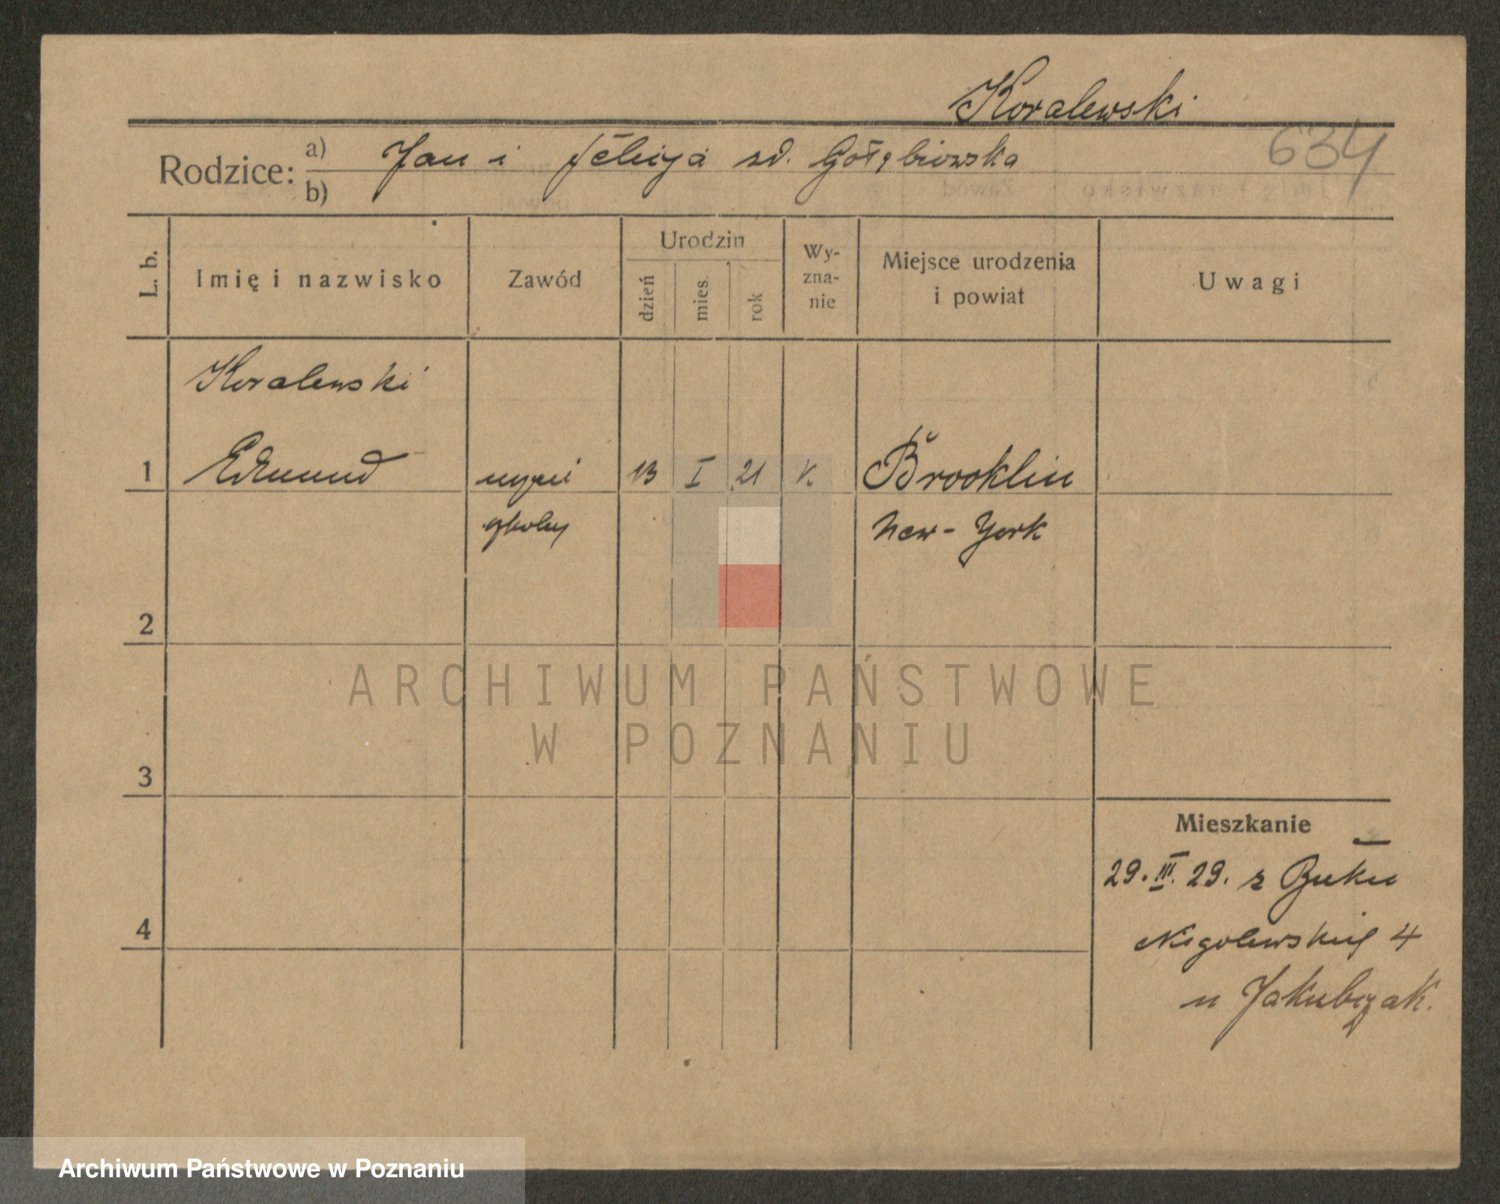 Koralewski
634
Rodzice: a) Jan i Felicja zd. Gołębiowska
b)
L. b.
Imię i nazwisko
Zawód
Urodzin
dzień
mies.
rok
Wy-
zna-
nie
Miejsce urodzenia
i powiat
Uwagi
Koralewski
1 Edmund uczeń 13 I 21 k. Brooklin
szkolny New-York
2
ARCHIWUM PAŃSTWOWE
W POZNANIU
3
Mieszkanie
29. III. 29. z Buku
Niegolewskich 4
u Jakubczak.
4
Archiwum Państwowe w Poznaniu